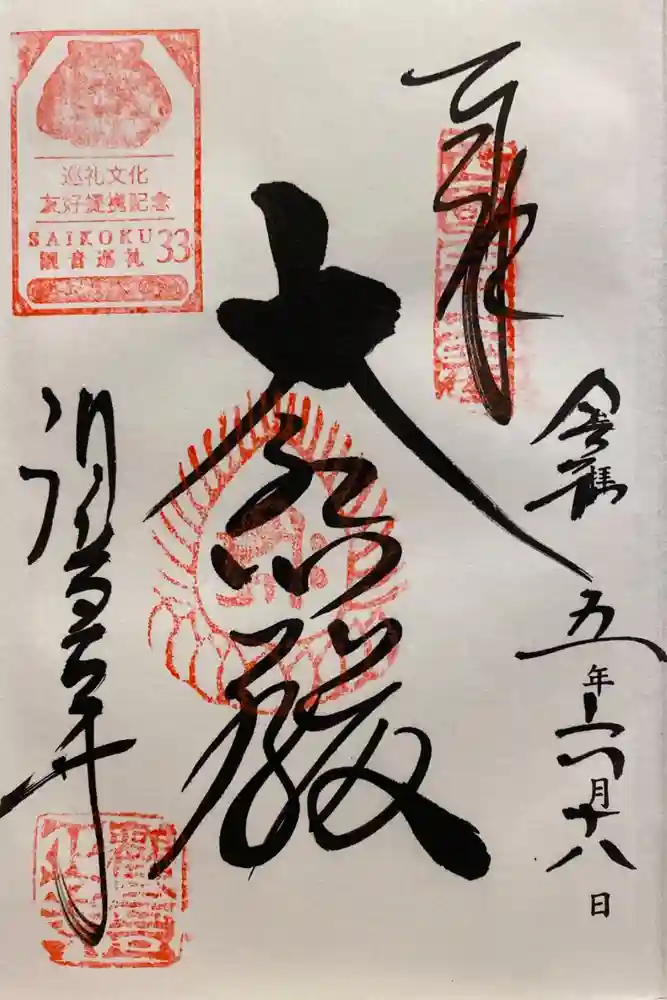 奉拝
令和
五年
月十八日
大悲殿
観音正寺
巡礼文化
友好提携記念
SAIKOKU 33
観音巡礼